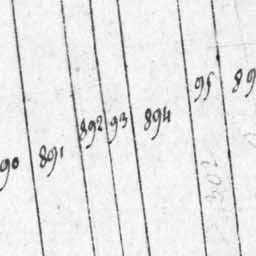 90 891 892 93 894 95 89